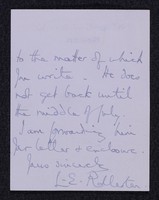 to the matter of which
you write. He does
not get back until
the middle of July.
I am forwarding him
your letter & enclosure.
Yours sincerely
L. E.